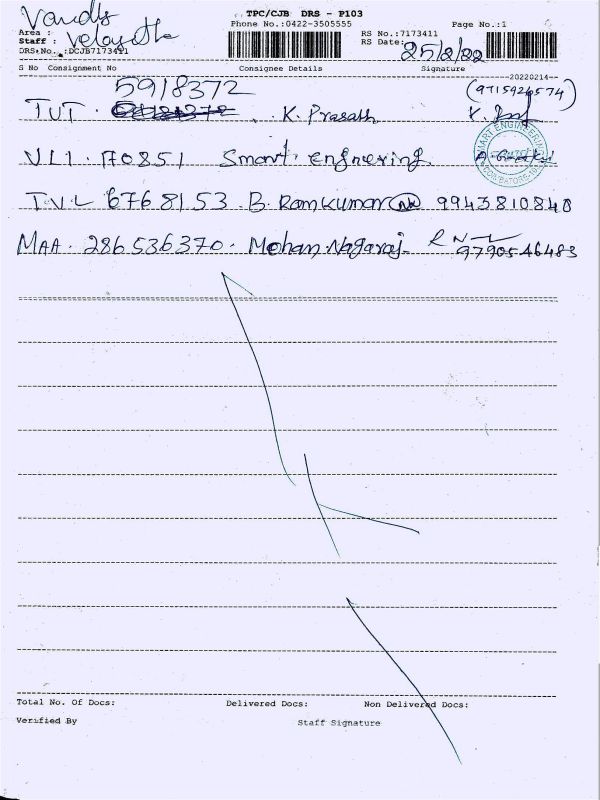 TPC/CJB DRS - P103
Phone No.:0422-3505555
Page No.:1
Area :
Staff :
DRS No.:DCJB7173411
RS No.:7173411
RS Date: 25/2/22
S No Consignment No Consignee Details Signature
20220214
5918372 (9715926574)
TUT. K. Prasath
VLI. 170851 Smart. engineering.
TVL 67681153 B Ramkumar 9943810840
MAA. 286536370. Mohan Nagaraj 9790546483
Total No. Of Docs: Delivered Docs: Non Delivered Docs:
Verified By Staff Signature